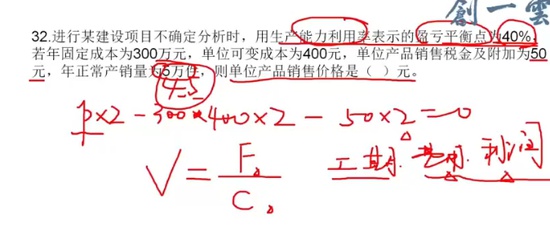 創一雲
32.进行某建设项目不确定分析时，用生产能力利用率表示的盈亏平衡点为40%。
若年固定成本为300万元，单位可变成本为400元，单位产品销售税金及附加为50
元，年正常产销量为5万件，则单位产品销售价格是（ ）元。
4-5
P×2-300×400×2-50×2=0
V=F/C
工期. 费用. 利润